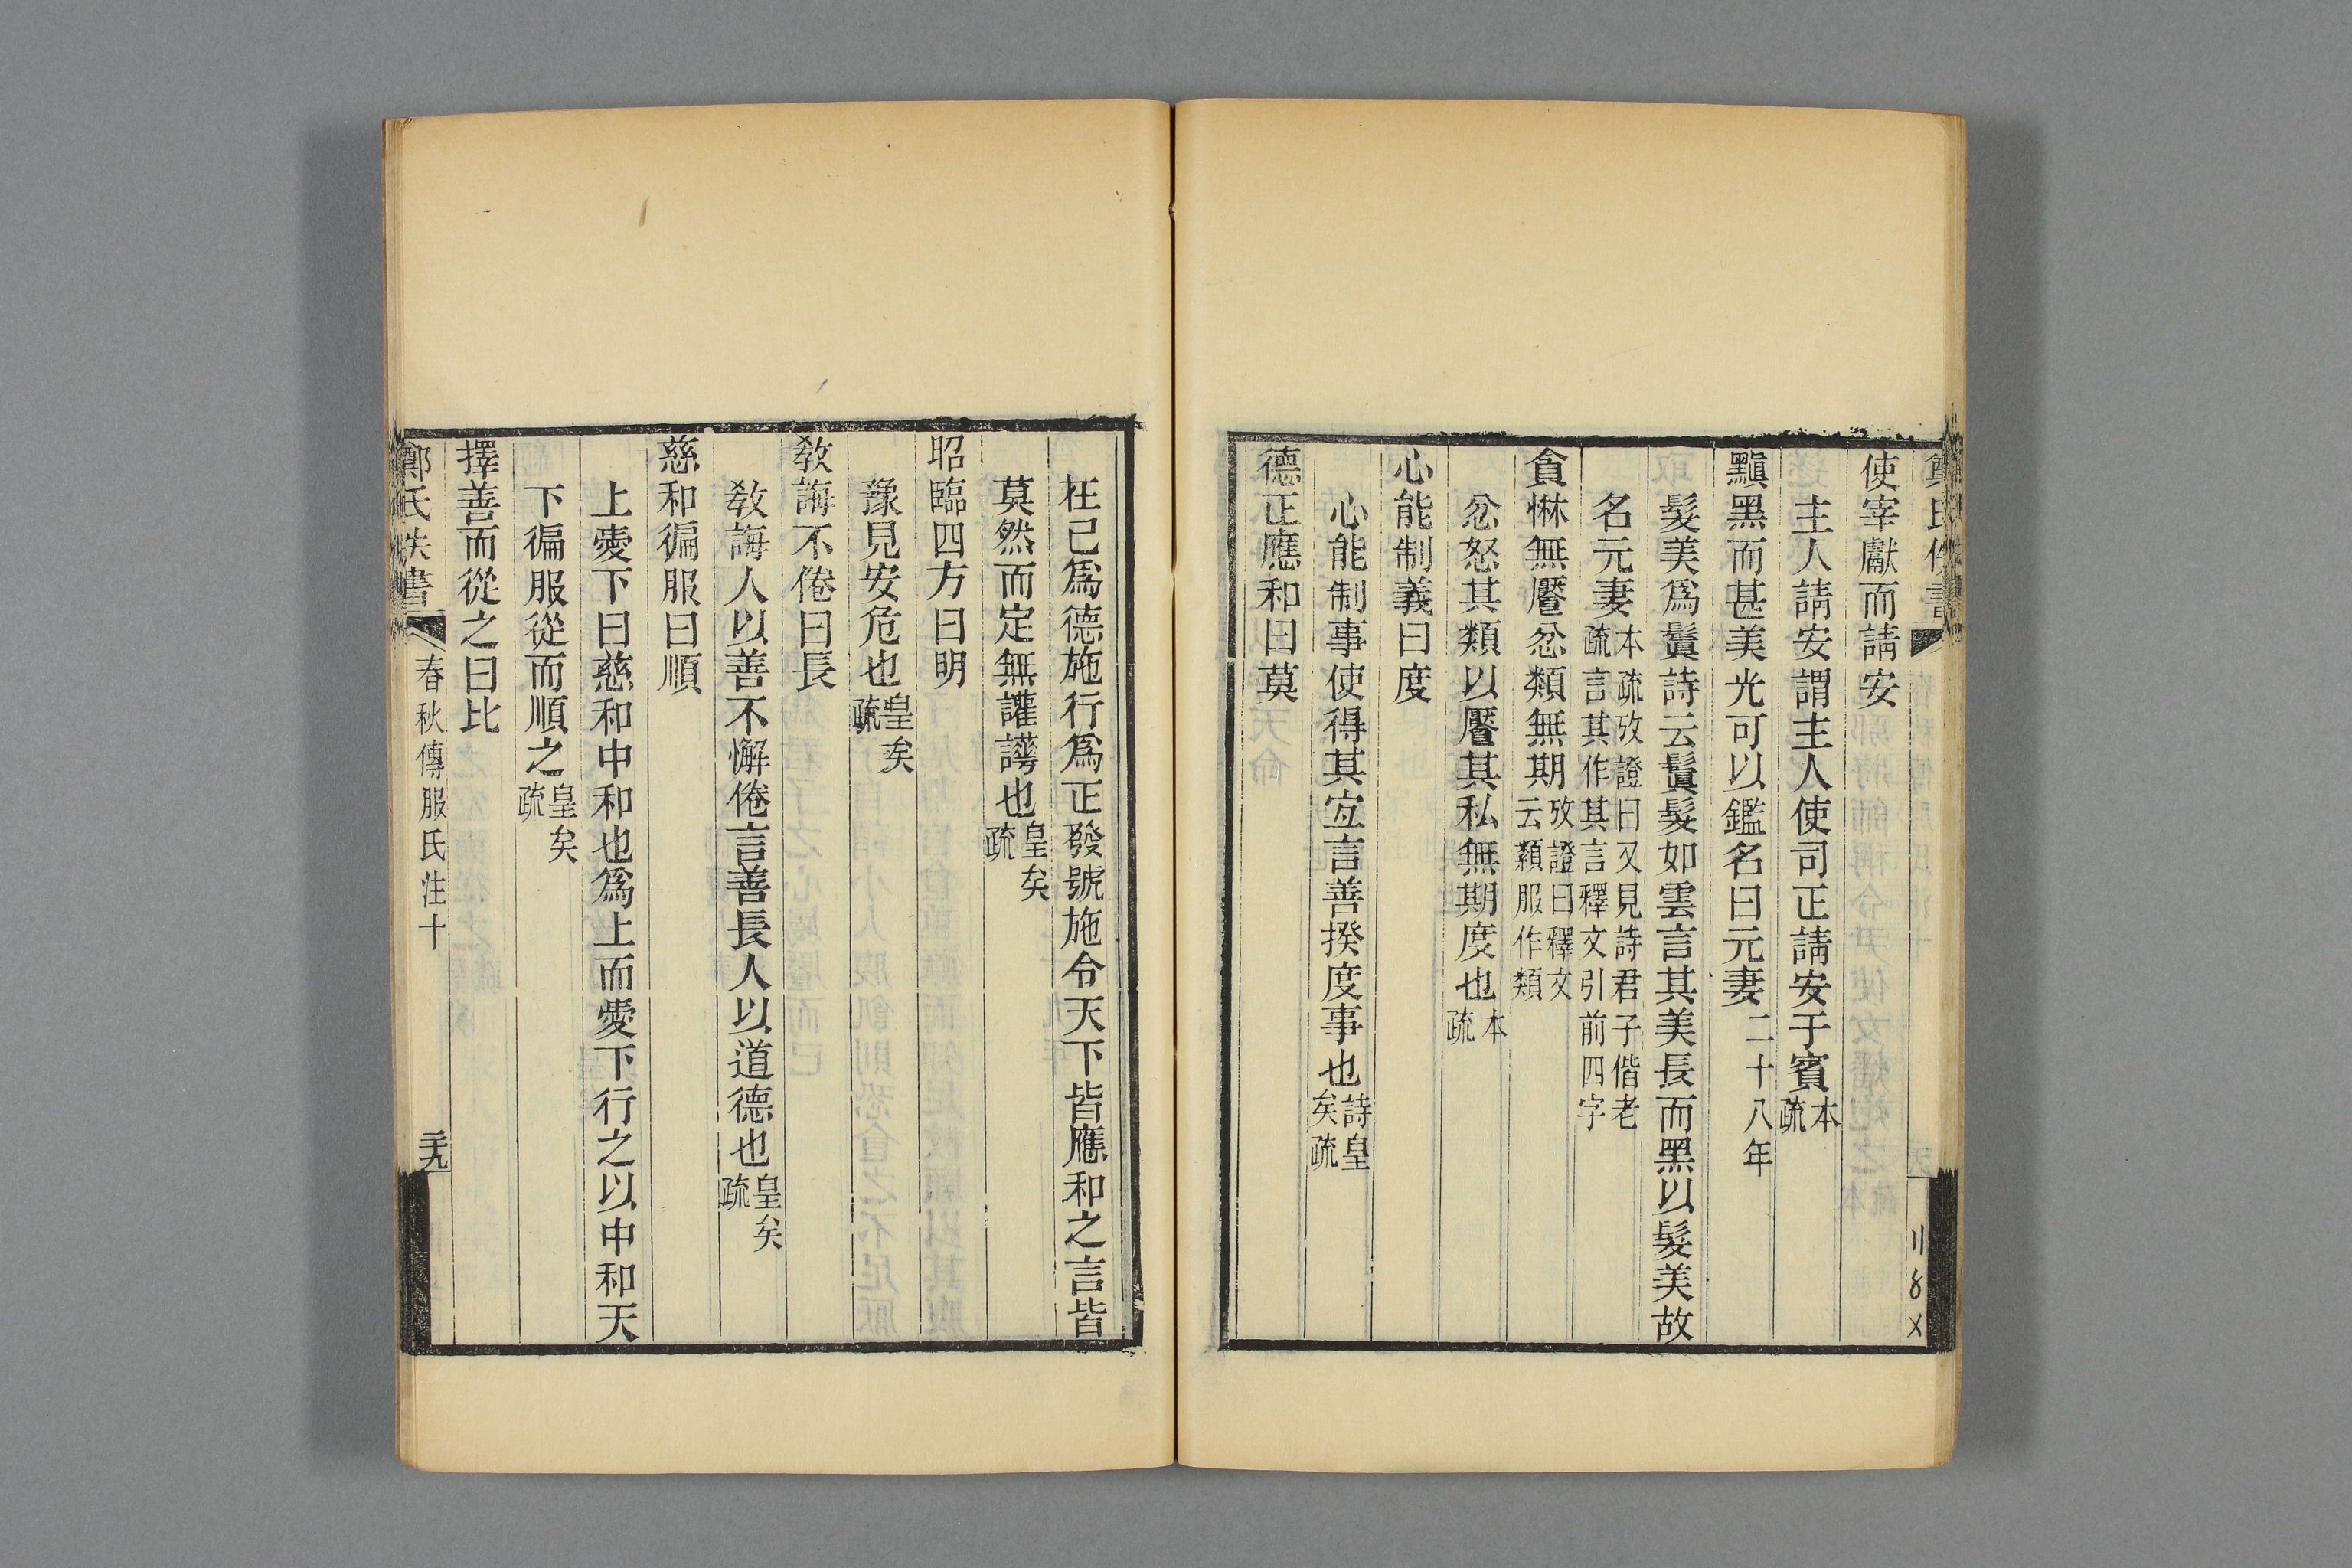 使宰獻而請安
主人請安謂主人使司正請安于賓本疏
黰黑而甚美光可以鑑名曰元妻二十八年
髮美爲鬒詩云鬒髮如雲言其美長而黑以髮美故
名元妻本疏攷證曰又見詩君子偕老疏言其作其言釋文引前四字
貪惏無饜忿類無期攷證曰釋文云纇服作類
忿怒其類以饜其私無期度也本疏
心能制義曰度
心能制事使得其宜言善揆度事也詩皇矣疏
德正應和曰莫
在己爲德施行爲正發號施令天下皆應和之言皆
莫然而定無讙譁也皇矣疏
昭臨四方曰明
豫見安危也皇矣疏
敎誨不倦曰長
敎誨人以善不懈倦言善長人以道德也皇矣疏
慈和徧服曰順
上愛下曰慈和中和也爲上而愛下行之以中和天
下徧服從而順之皇矣疏
擇善而從之曰比
鄭氏佚書 春秋傳服氏注十 三九